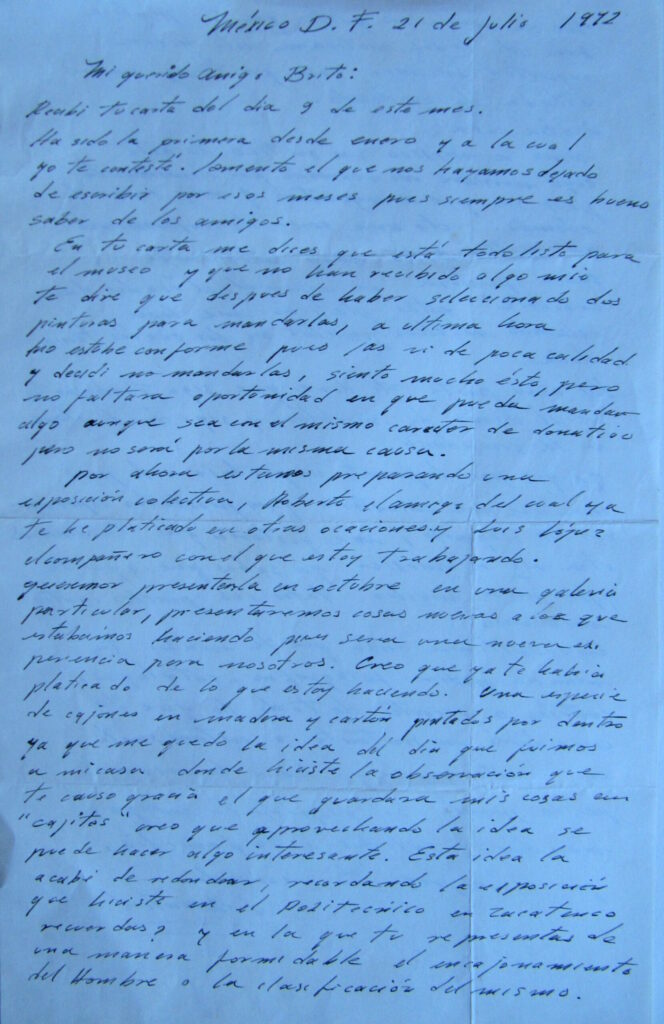 México D. F. 21 de julio 1972
Mi querido amigo Brito:
Recibi tu carta del dia 9 de este mes.
Ha sido la primera desde enero y a la cual
yo te contesté. lamento el que nos hayamos dejado
de escribir por esos meses pues siempre es bueno
saber de los amigos.
En tu carta me dices que está todo listo para
el museo y que no han recibido algo mio
te dire que despues de haber seleccionado dos
pinturas para mandarlas, a ultima hora
no estube conforme pues las vi de poca calidad
y decidi no mandarlas, siento mucho ésto, pero
no faltara oportunidad en que pueda mandar
algo aunque sea con el mismo caracter de donativo
pero no será por la misma causa.
por ahora estamos preparando una
exposición colectiva, Roberto el amigo del cual ya
te he platicado en otras ocaciones y Luis López
el compañero con el que estoy trabajando.
queremos presentarla en octubre en una galeria
particular, presentaremos cosas nuevas a las que
estabamos haciendo pues sera una nueva ex-
periencia para nosotros. Creo que ya te habia
platicado de lo que estoy haciendo. Una especie
de cajones en madera y cartón pintados por dentro
ya que me quedo la idea del dia que fuimos
a mi casa donde hiciste la observación que
te causo gracia el que guardara mis cosas en
"cajitas" creo que aprovechando la idea se
puede hacer algo interesante. Esta idea la
acabé de redondear, recordando la exposición
que hiciste en el Politecnico en Zacatenco
recuerdas? y en la que tu representas de
una manera formidable el encajonamiento
del Hombre o la clasificación del mismo.